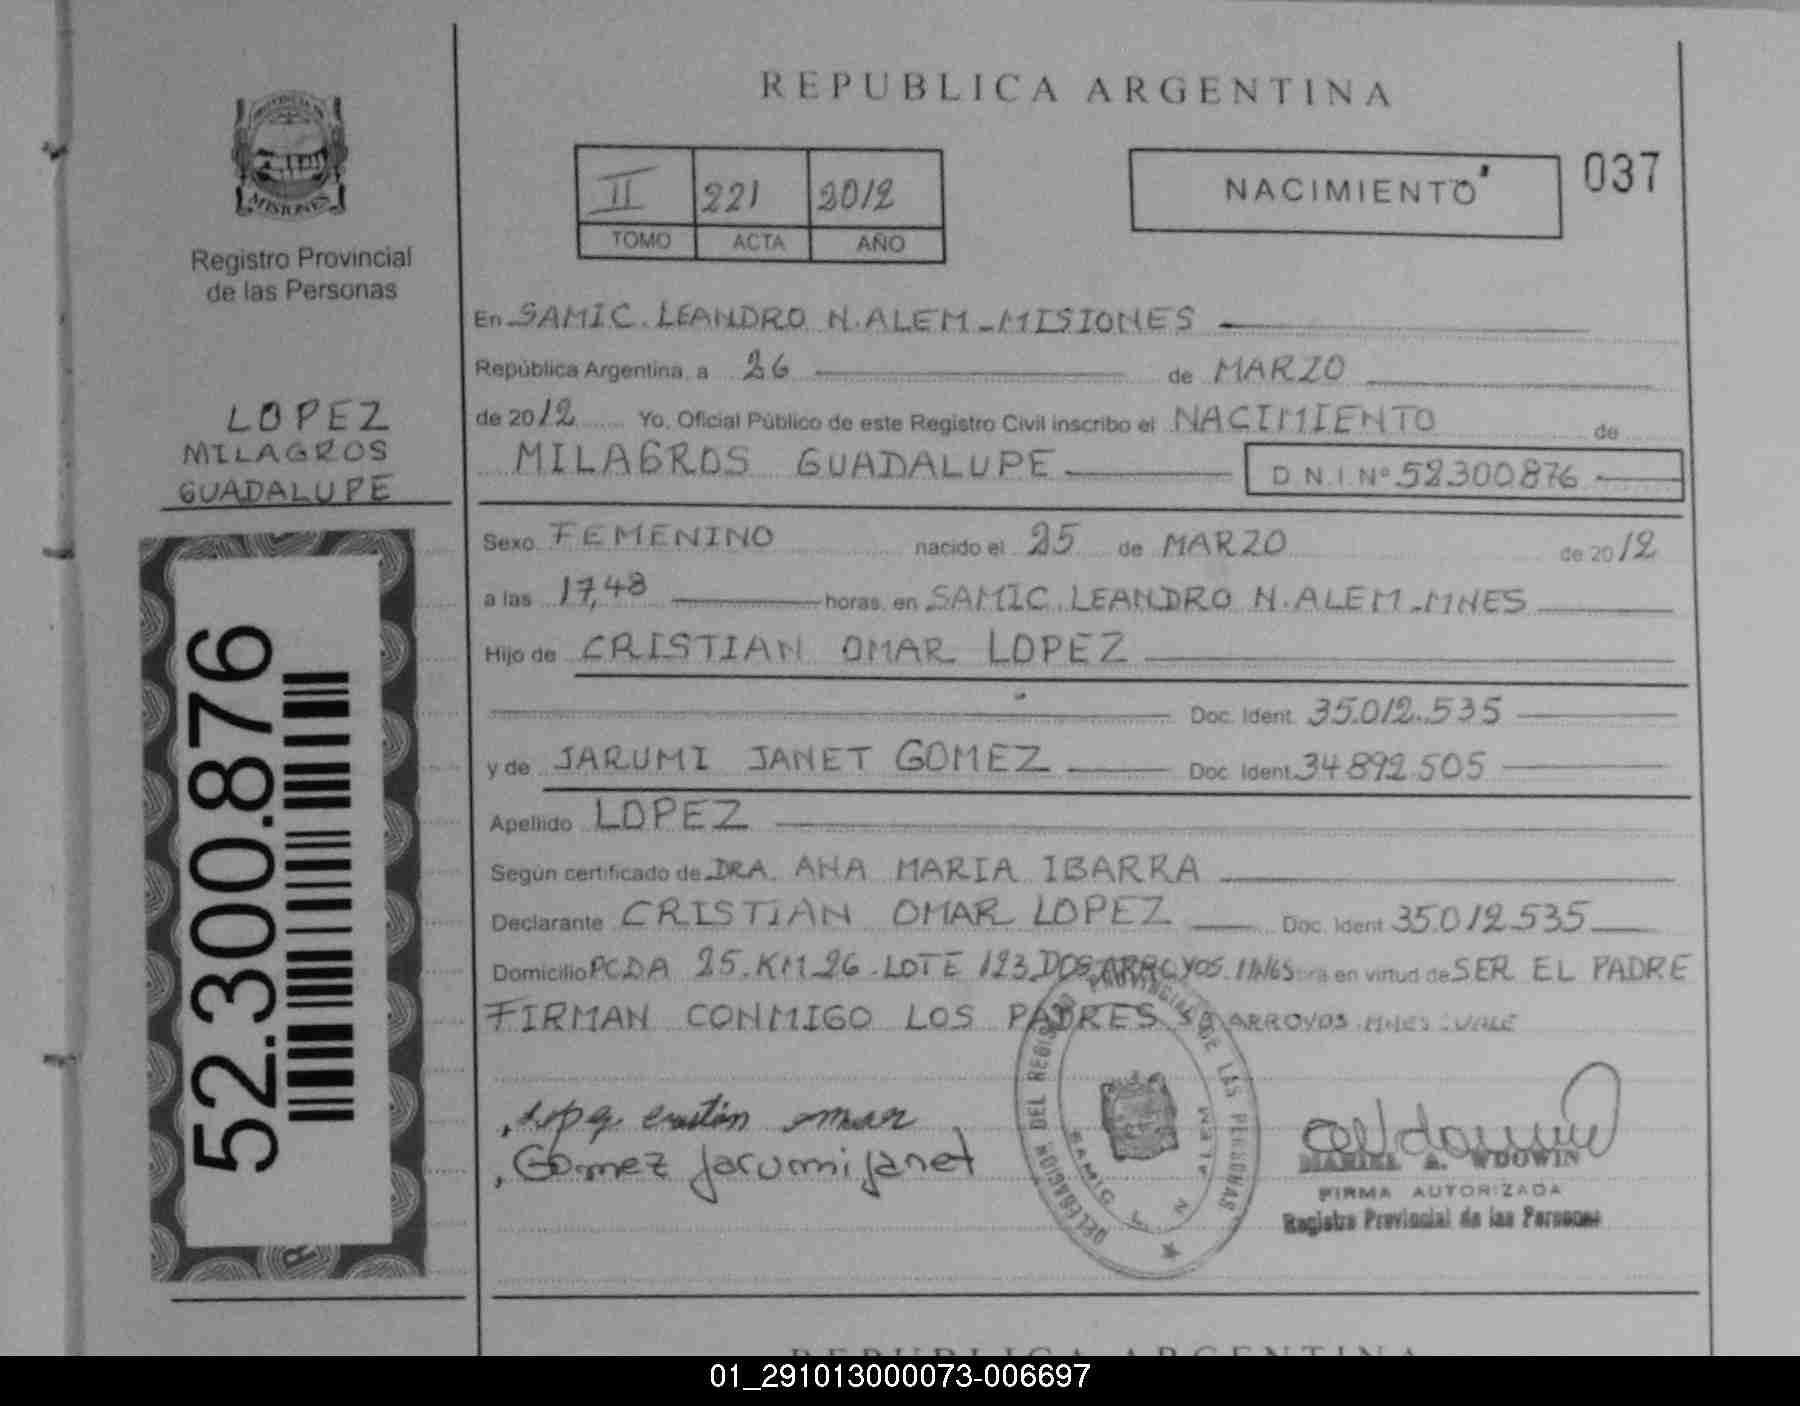 REPUBLICA ARGENTINA
PROVINCIA DE
MISIONES
Registro Provincial
de las Personas
II 221 2012
TOMO ACTA AÑO
NACIMIENTO
037
En SAMIC. LEANDRO N. ALEM - MISIONES
República Argentina, a 26 de MARZO
de 2012 Yo, Oficial Público de este Registro Civil inscribo el NACIMIENTO de
MILAGROS GUADALUPE D.N.I. Nº 52.300.876
LOPEZ
MILAGROS
GUADALUPE
52.300.876
Sexo FEMENINO nacido el 25 de MARZO de 2012
a las 17,48 horas, en SAMIC. LEANDRO N. ALEM - MNES
Hijo de CRISTIAN OMAR LOPEZ
Doc. Ident. 35.012.535
y de JARUMI JANET GOMEZ Doc. Ident. 34.892.505
Apellido LOPEZ
Según certificado de DRA. ANA MARIA IBARRA
Declarante CRISTIAN OMAR LOPEZ Doc. Ident. 35.012.535
Domicilio PCDA 25. KM 26. LOTE 123 DOS ARROYOS. en virtud de SER EL PADRE
FIRMAN CONMIGO LOS PADRES ARROYOS. MNES: VALE
Lopez cristian omar
Gomez Jarumi janet
DELEGACION DEL REGISTRO PROVINCIAL DE LAS PERSONAS
SAMIC L. N. ALEM
A. WDOWIN
FIRMA AUTORIZADA
Registro Provincial de las Personas
REPUBLICA ARGENTINA
01_291013000073-006697